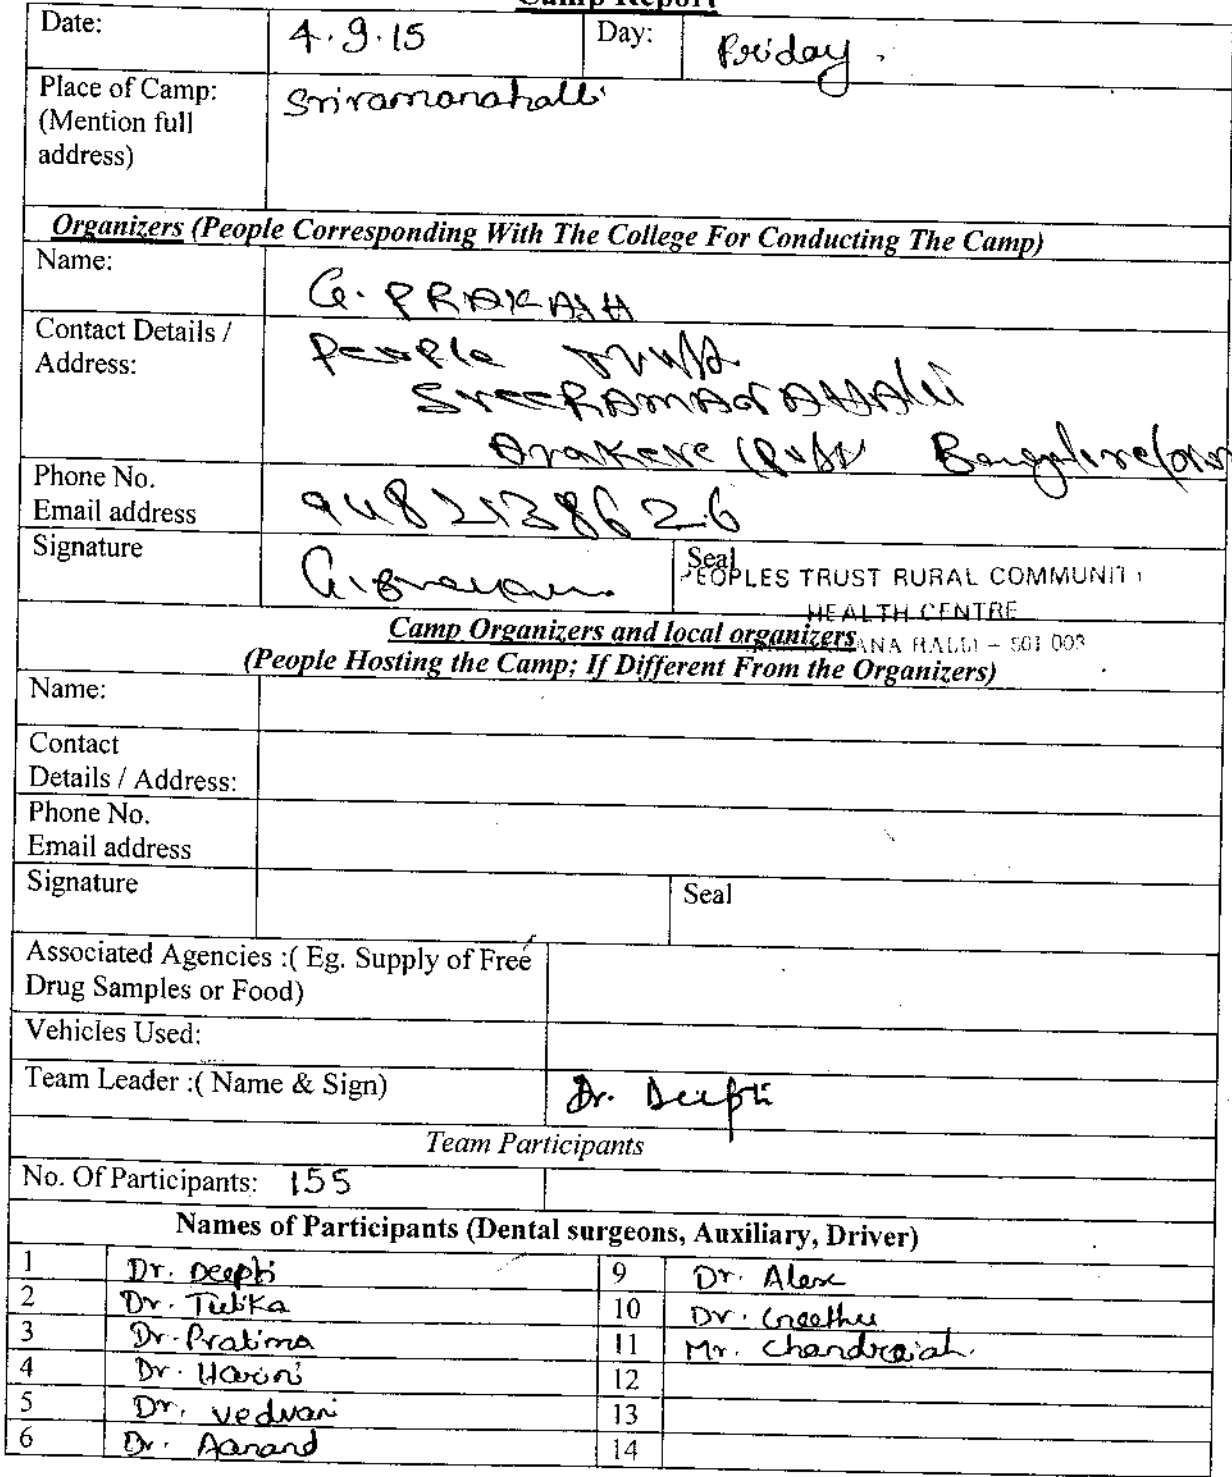 Camp Report
Date: 4.9.15 Day: Friday.
Place of Camp: Sriramanahalli
(Mention full
address)
Organizers (People Corresponding With The College For Conducting The Camp)
Name: G. PRAKASH
Contact Details / People Trust
Address: SreeRAMANAHALLi
Arakere (Post)
Phone No. 9482138626
Email address
Signature
Seal
PEOPLES TRUST RURAL COMMUNIT
HEALTH CENTRE
ANA HALLI – 561 003
Camp Organizers and local organizers
(People Hosting the Camp; If Different From the Organizers)
Name:
Contact
Details / Address:
Phone No.
Email address
Signature Seal
Associated Agencies :( Eg. Supply of Free
Drug Samples or Food)
Vehicles Used:
Team Leader :( Name & Sign) Dr. Deepti
Team Participants
No. Of Participants: 155
Names of Participants (Dental surgeons, Auxiliary, Driver)
1 Dr. Deepti 9 Dr. Alex
2 Dr. Tulika 10 Dr. Greethu
3 Dr. Pratima 11 Mr. Chandraiah.
4 Dr. Harini 12
5 Dr. Vedvani 13
6 Dr. Aanand 14